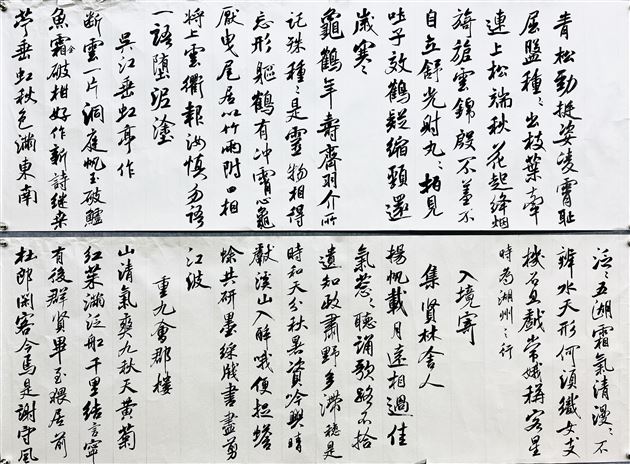 青松勁挺姿凌霄耻
屈盤種々出枝葉牽
連上松端秋花起絳烟
旖旎雲錦殷不羞不
自立舒光射丸々柏見
吐子效鶴疑縮頸還
歲寒々
龜鶴年壽齊羽介所
託殊種々是靈物相得
忘形軀鶴有冲霄心龜
厭曳尾居以竹兩附口相
將上雲衢報汝慎勿語
一語墮泥塗
吳江垂虹亭作
断雲一片洞庭帆玉破鱸
魚霜金破柑好作新詩継桑
苧垂虹秋色滿東南
泛々五湖霜氣清漫々不
辨水天形何須織女支
機石且戲常娥稱客星
時為湖州之行
入境寄
集賢林舍人
揚帆載月遠相過佳
氣葱々聽誦歌路不拾
遺知政肅野多滯穗是
時和天分秋暑資吟興晴
獻溪山入醉哦便捉蟾
蜍共研墨綵牋書盡剪
江波
重九會郡樓
山清氣爽九秋天黃菊
紅茱滿泛船千里結言寧
有後群賢畢至猥居前
杜郎閑客今焉是謝守風